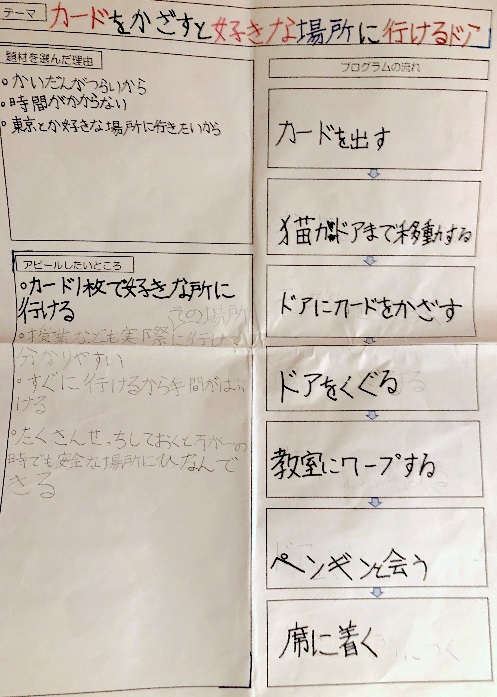 テーマ
カードをかざすと好きな場所に行けるドア
題材を選んだ理由
・かいだんがつらいから
・時間がかからない
・東京とか好きな場所に行きたいから
アピールしたいところ
・カード1枚で好きな所に
行ける
その場所
・授業なども実際に行けて
分かりやすい
・すぐに行けるから手間がはぶ
ける
・たくさんせっちしておくと万が一の
時でも安全な場所にひなんで
きる
プログラムの流れ
カードを出す
猫がドアまで移動する
ドアにカードをかざす
ドアをくぐる
教室にワープする
ペンギンと会う
席に着く